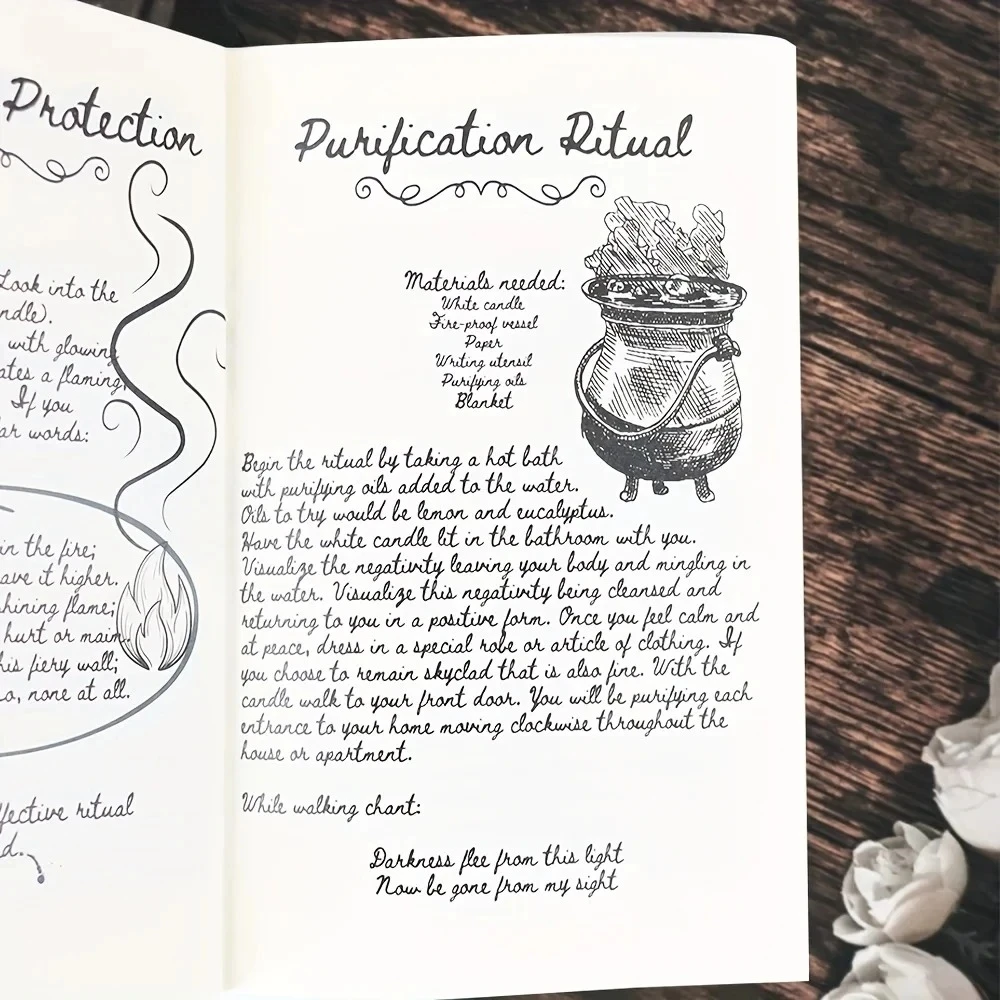 Protection
Look into the
ndle).
with glowing
ates a flaming,
If you
ar words:
in the fire;
ave it higher.
hining flame;
hurt or maim.
his fiery wall;
o, none at all.
ffective ritual
d.
Purification Ritual
Materials needed:
White candle
Fire-proof vessel
Paper
Writing utensil
Purifying oils
Blanket
Begin the ritual by taking a hot bath
with purifying oils added to the water.
Oils to try would be lemon and eucalyptus.
Have the white candle lit in the bathroom with you.
Visualize the negativity leaving your body and mingling in
the water. Visualize this negativity being cleansed and
returning to you in a positive form. Once you feel calm and
at peace, dress in a special robe or article of clothing. If
you choose to remain skyclad that is also fine. With the
candle walk to your front door. You will be purifying each
entrance to your home moving clockwise throughout the
house or apartment.
While walking chant:
Darkness flee from this light
Now be gone from my sight